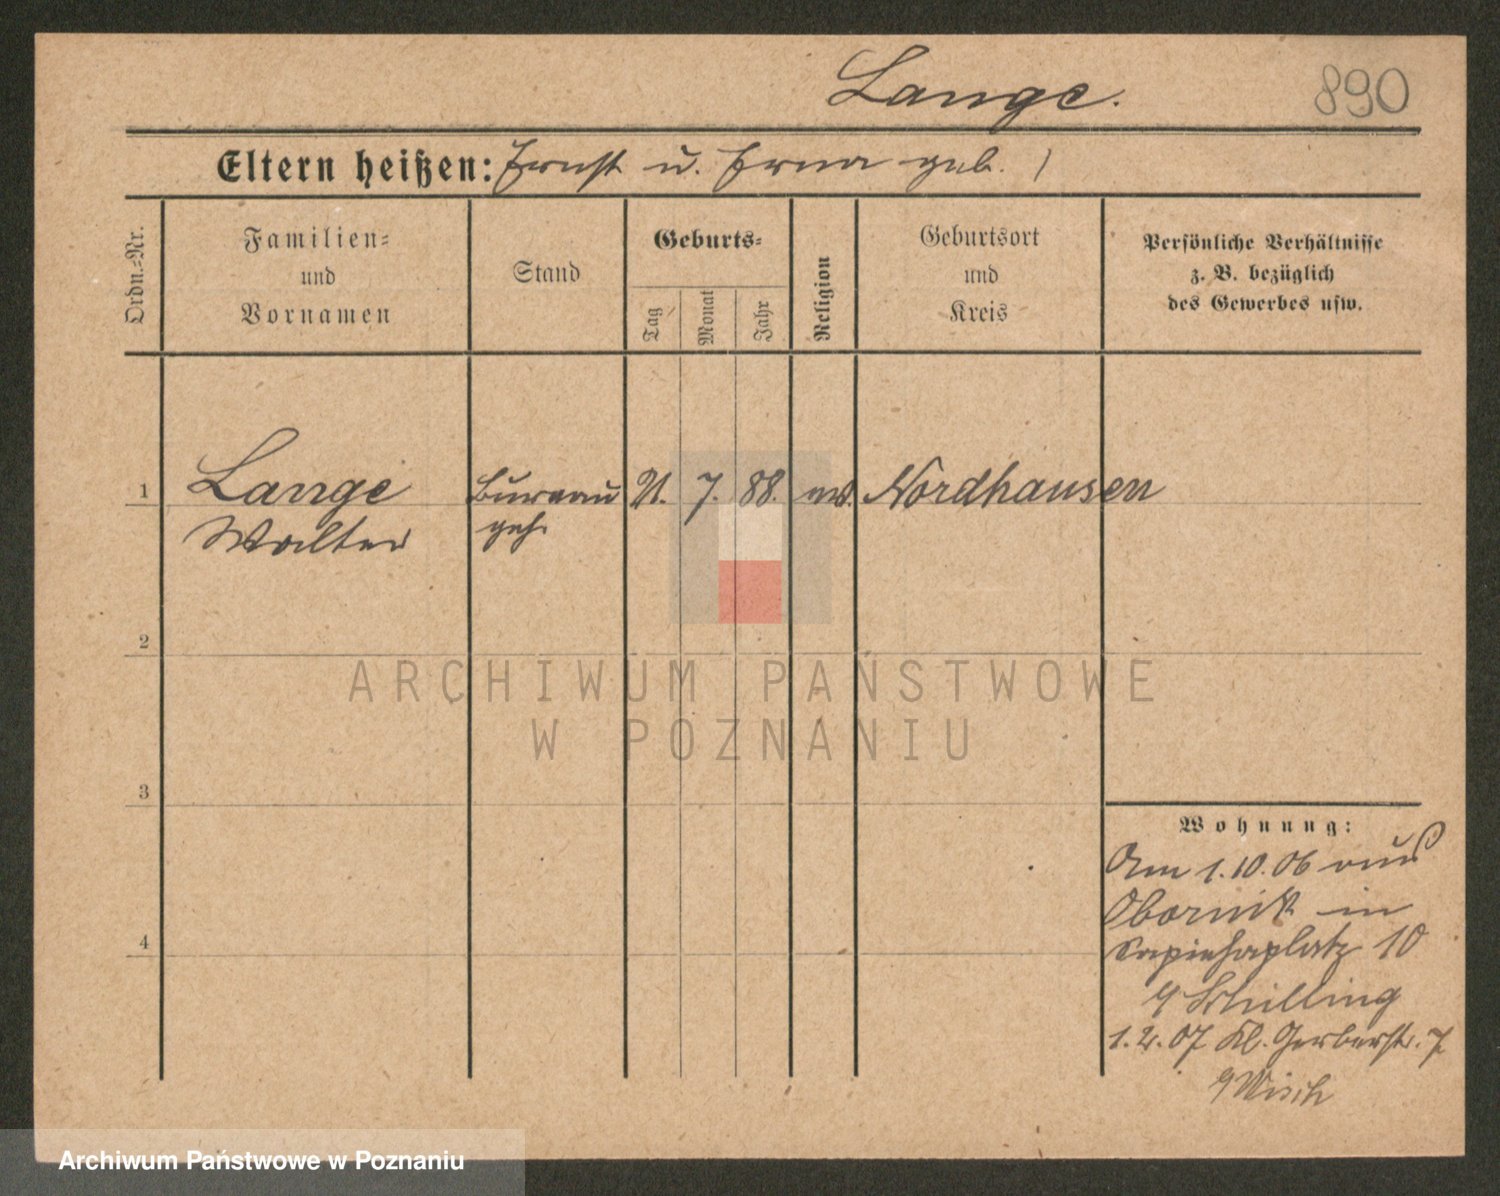 Lange.
890
Eltern heißen: Ernst u. Erna geb. )
Ordn.-Nr.
Familien-
und
Vornamen
Stand
Geburts-
Tag
Monat
Jahr
Religion
Geburtsort
und
Kreis
Persönliche Verhältnisse
z. B. bezüglich
des Gewerbes usw.
1
Lange
Walter
Bureau
geh.
21. 7. 88. ev. Nordhausen
2
3
4
ARCHIWUM PAŃSTWOWE
W POZNANIU
Wohnung:
Am 1.10.06 aus
Obornik in
Sapiehaplatz 10
Schilling
1.2.07 Kl. Gerberstr. 7
Wisch
Archiwum Państwowe w Poznaniu